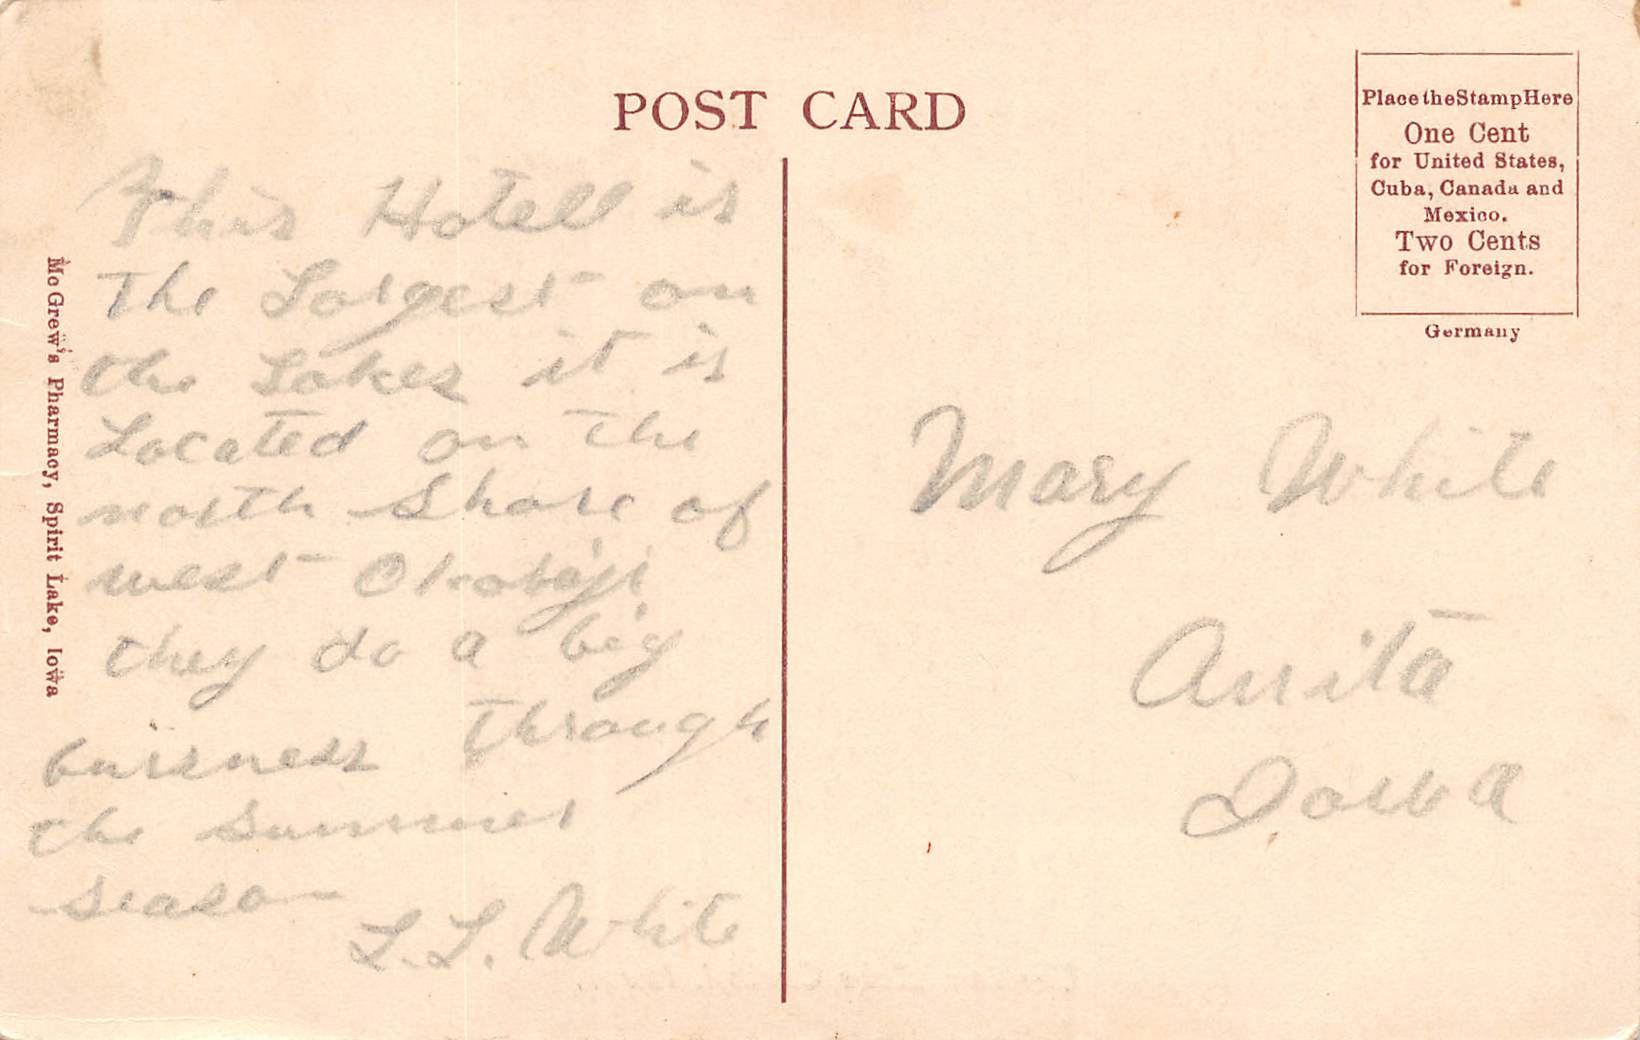 POST CARD
Place the Stamp Here
One Cent
for United States,
Cuba, Canada and
Mexico.
Two Cents
for Foreign.
Germany
Mc Grew's Pharmacy, Spirit Lake, Iowa
This Hotell is
The Largest on
the Lakes it is
Located on the
north Shore of
west Okoboji
they do a big
buisness through
the summer
season
L.L. White
Mary White
Anita
Iowa